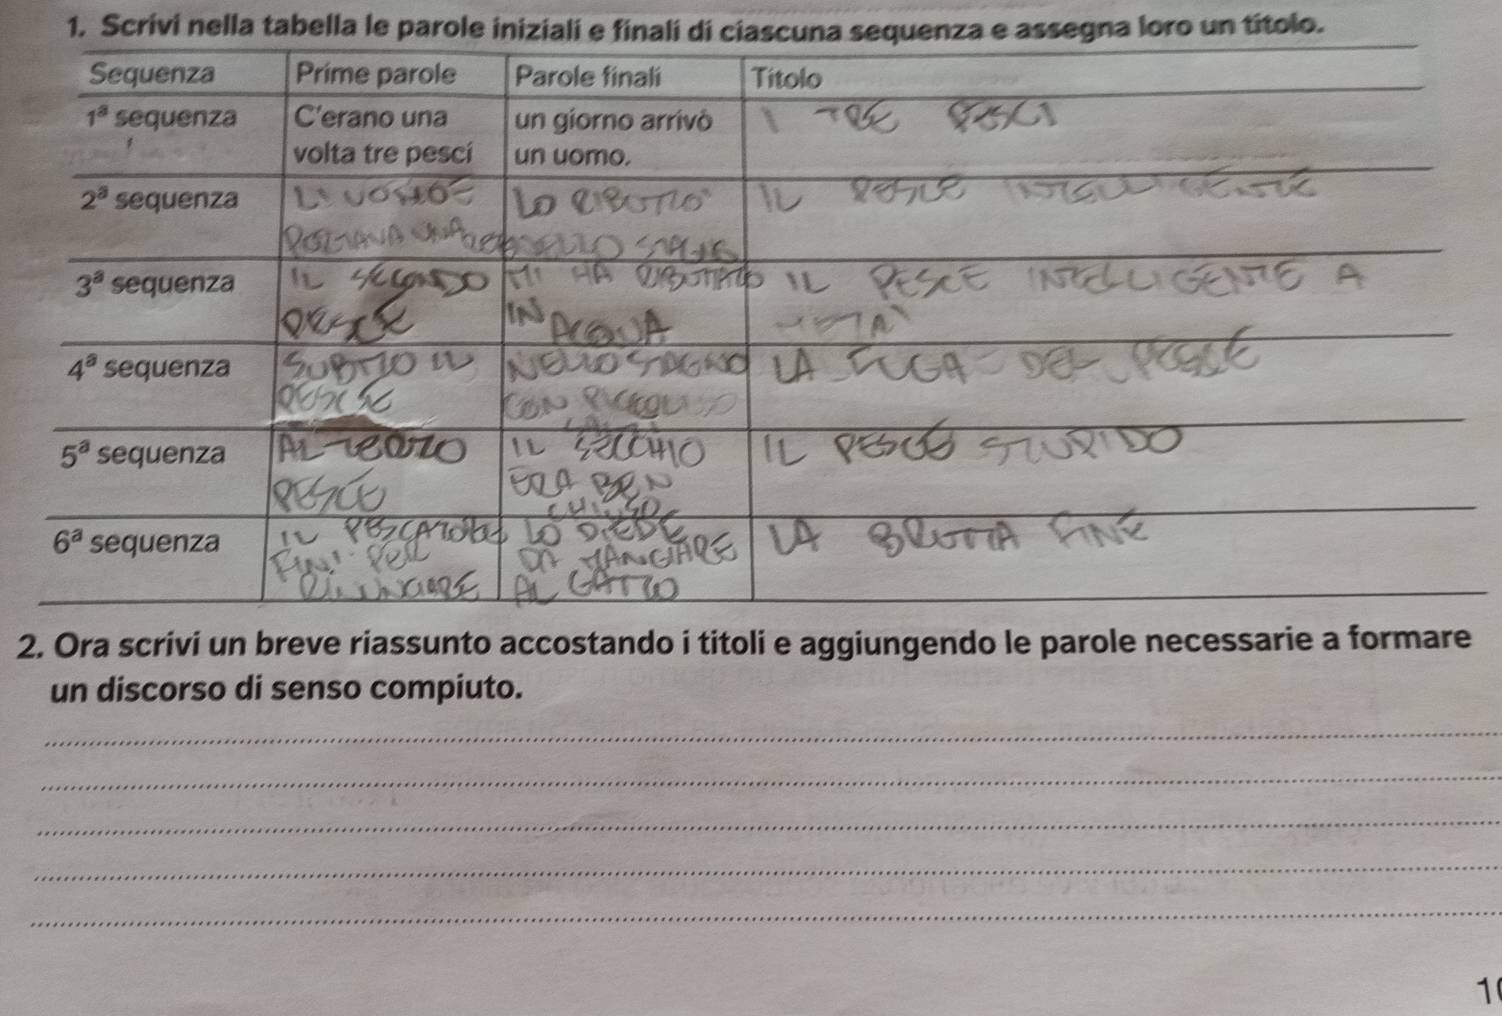 1. Scrivi nella tabella le parole iniziali e finali di ciascuna sequenza e assegna loro un titolo.
Sequenza Prime parole Parole finali Titolo
1ª sequenza C'erano una un giorno arrivò I TRE PESCI
volta tre pesci un uomo.
2ª sequenza LO RIBUTTO' IL PESCE INTELLIGENTE
PORTAVA UNA STAGNO
3ª sequenza IL SECONDO MI HA RIBUTTATO IL PESCE INTELLIGENTE A
PESCE IN ACQUA META'
4ª sequenza SUBITO IL NELLO STAGNO LA FUGA DEL PESCE
PESCE CON
5ª sequenza AL TERZO IL SECCHIO IL PESCE STUPIDO
PESCE ERA BEN
CHIUSO
6ª sequenza IL PESCATORE LO DIEDE LA BRUTTA FINE
FINI' PER DA MANGIARE
RINUNCIARE AL GATTO
2. Ora scrivi un breve riassunto accostando i titoli e aggiungendo le parole necessarie a formare
un discorso di senso compiuto.